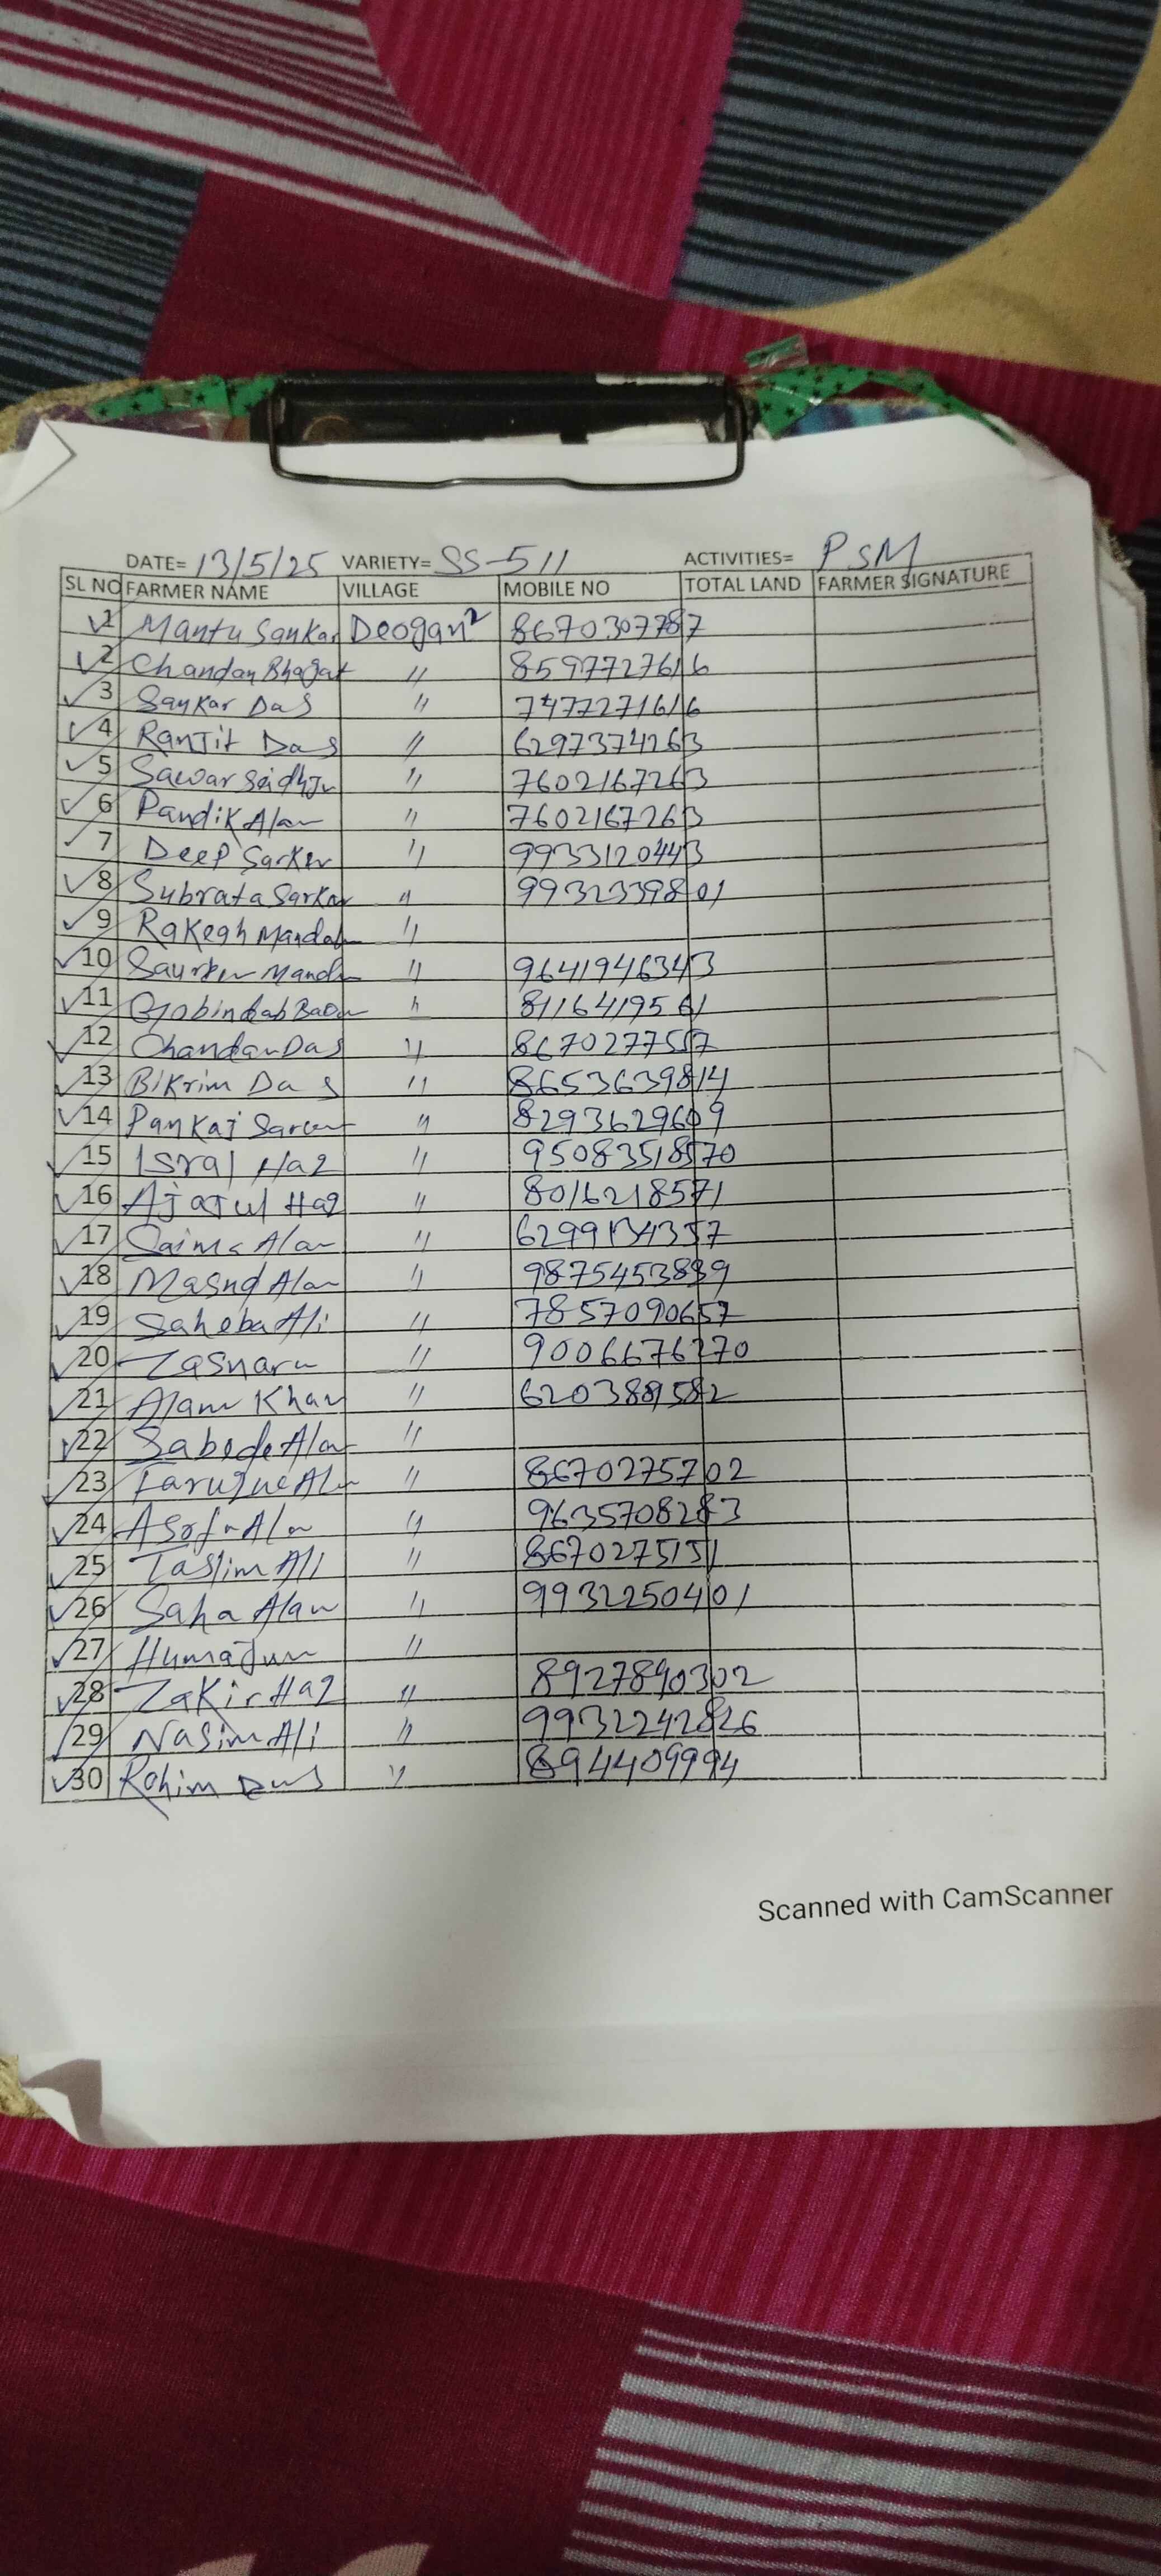 DATE= 13/5/25 VARIETY= SS-511 ACTIVITIES= PSM
SL NO FARMER NAME VILLAGE MOBILE NO TOTAL LAND FARMER SIGNATURE
1 Mantu Sankar Deogan 8670307787
2 Chandan Bhagat " 8597727616
3 Sankar Das " 7477271616
4 Ranjit Das " 6297374263
5 Sawar " 7602167263
6 Pandik Alam " 7602167263
7 Deep Sarker " 9933120443
8 Subrata Sarkar " 9932339801
9 Rakegh Mandal "
10 " 9641946343
11 " 8116419561
12 Chandan Das " 8670277557
13 Bikrim Das " 8653639814
14 Pankaj " 8293629609
15 Isral Haq " 95083518570
16 Ajajul Haq " 8016218571
17 Saima Alam " 6299134357
18 Masud Alam " 9875453839
19 Saheba Ali " 7857090657
20 " 9006676270
21 Alam Khan " 6203889582
22 Sabede Alam "
23 Faruque Alam " 8670275702
24 " 9635708283
25 Taslim Ali " 8670275151
26 Saha Alam " 9932250401
27 Humajun "
28 Zakir Haq " 8927890302
29 Nasim Ali " 9932242826
30 Rahim Das " 894409994
Scanned with CamScanner